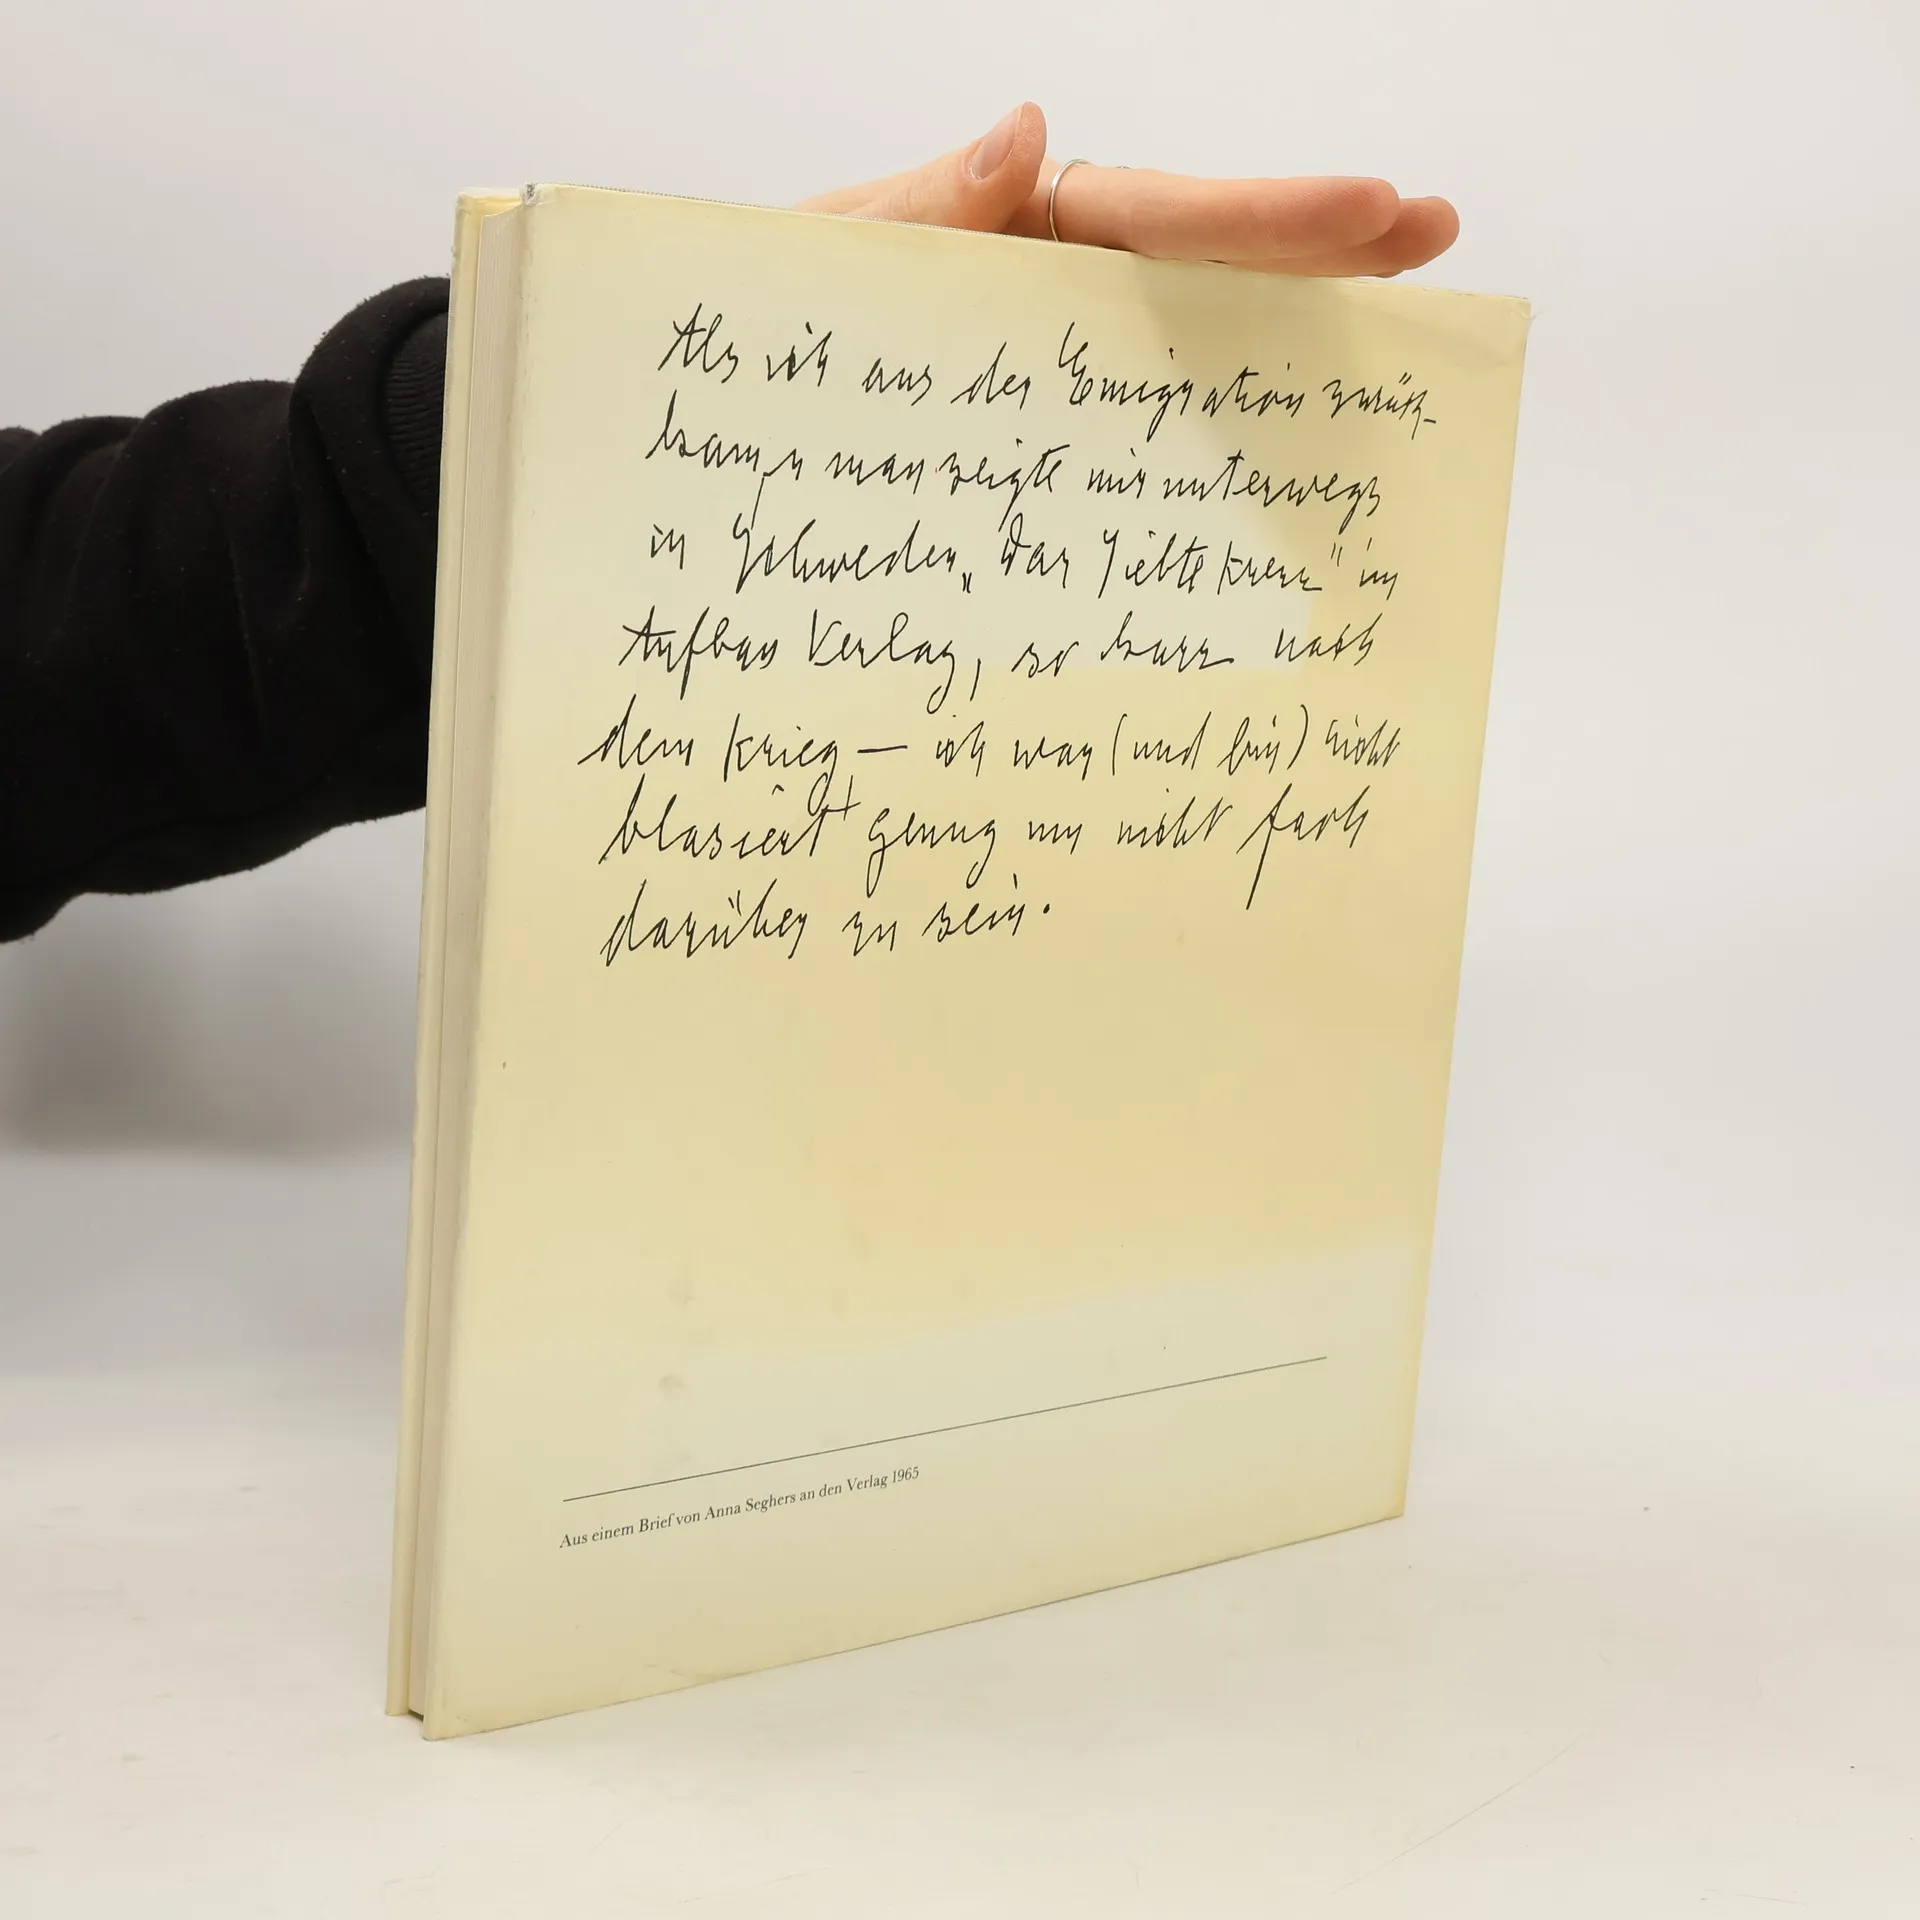 Als ich aus der Emigration zurück-
kam, u man zeigte mir unterwegs
in Schweden „Das Siebte Kreuz" im
Aufbau Verlag, so kurz nach
dem Krieg — ich war (und bin) nicht
blasiert genug um nicht froh
darüber zu sein.
Aus einem Brief von Anna Seghers an den Verlag 1965